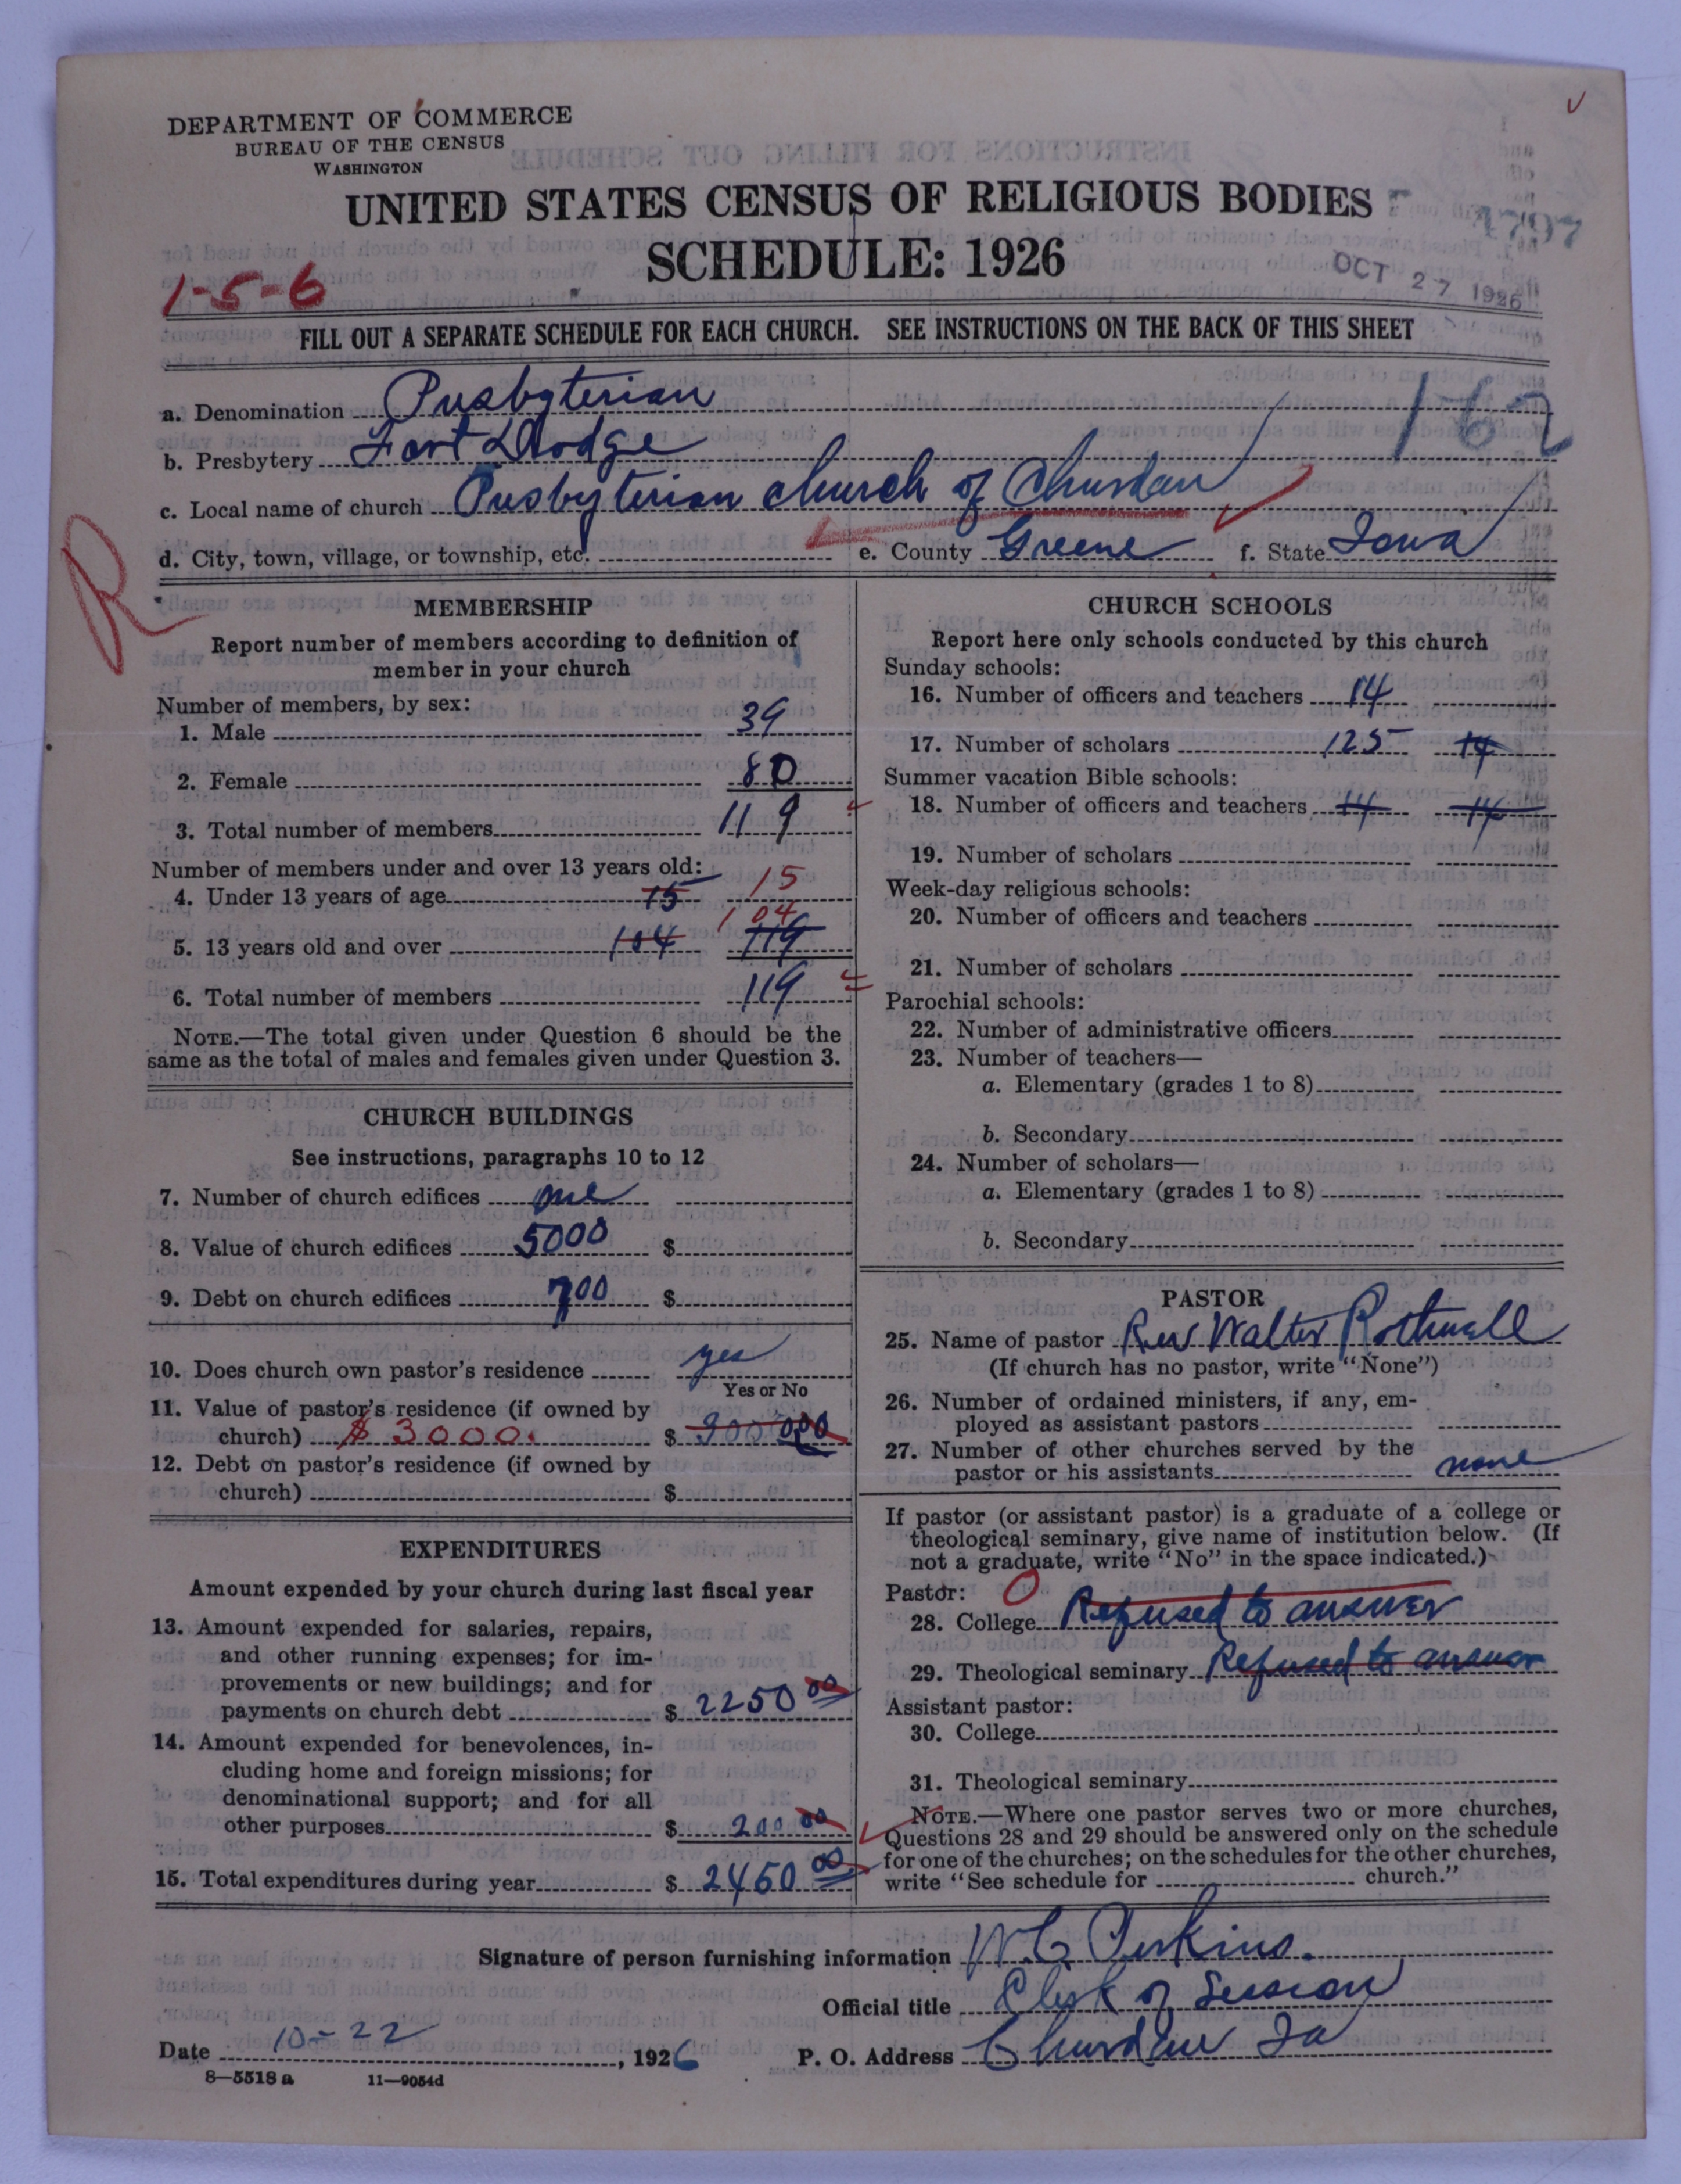 DEPARTMENT OF COMMERCE
BUREAU OF THE CENSUS
WASHINGTON
UNITED STATES CENSUS OF RELIGIOUS BODIES
SCHEDULE: 1926
1797
OCT 27 1926
1-5-6
FILL OUT A SEPARATE SCHEDULE FOR EACH CHURCH. SEE INSTRUCTIONS ON THE BACK OF THIS SHEET
162
a. Denomination Presbyterian
b. Presbytery Fort Dodge
c. Local name of church Presbyterian church of Churdan
d. City, town, village, or township, etc. e. County Greene f. State Iowa
R
MEMBERSHIP
Report number of members according to definition of
member in your church
Number of members, by sex:
1. Male 39
2. Female 80
3. Total number of members 119
Number of members under and over 13 years old:
4. Under 13 years of age 15 15
5. 13 years old and over 104 104 119
6. Total number of members 119
NOTE.—The total given under Question 6 should be the
same as the total of males and females given under Question 3.
CHURCH BUILDINGS
See instructions, paragraphs 10 to 12
7. Number of church edifices one
8. Value of church edifices 5000 $
9. Debt on church edifices 700 $
10. Does church own pastor's residence yes
Yes or No
11. Value of pastor's residence (if owned by
church) $ 3000. $ 300000
12. Debt on pastor's residence (if owned by
church) $
EXPENDITURES
Amount expended by your church during last fiscal year
13. Amount expended for salaries, repairs,
and other running expenses; for im-
provements or new buildings; and for
payments on church debt $ 2250 00
14. Amount expended for benevolences, in-
cluding home and foreign missions; for
denominational support; and for all
other purposes $ 200 00
15. Total expenditures during year $ 2450 00
CHURCH SCHOOLS
Report here only schools conducted by this church
Sunday schools:
16. Number of officers and teachers 14
17. Number of scholars 125 14
Summer vacation Bible schools:
18. Number of officers and teachers 14 14
19. Number of scholars
Week-day religious schools:
20. Number of officers and teachers
21. Number of scholars
Parochial schools:
22. Number of administrative officers
23. Number of teachers—
a. Elementary (grades 1 to 8)
b. Secondary
24. Number of scholars—
a. Elementary (grades 1 to 8)
b. Secondary
PASTOR
25. Name of pastor Rev Walter Rothwell
(If church has no pastor, write "None")
26. Number of ordained ministers, if any, em-
ployed as assistant pastors
27. Number of other churches served by the
pastor or his assistants none
If pastor (or assistant pastor) is a graduate of a college or
theological seminary, give name of institution below. (If
not a graduate, write "No" in the space indicated.)
Pastor: O
28. College Refused to answer
29. Theological seminary Refused to answer
Assistant pastor:
30. College
31. Theological seminary
NOTE.—Where one pastor serves two or more churches,
Questions 28 and 29 should be answered only on the schedule
for one of the churches; on the schedules for the other churches,
write "See schedule for church."
Signature of person furnishing information W. C. Perkins.
Official title Clerk of Session
Date 10-22, 1926 P. O. Address Churdan Ia
8—5518 a 11—9054d